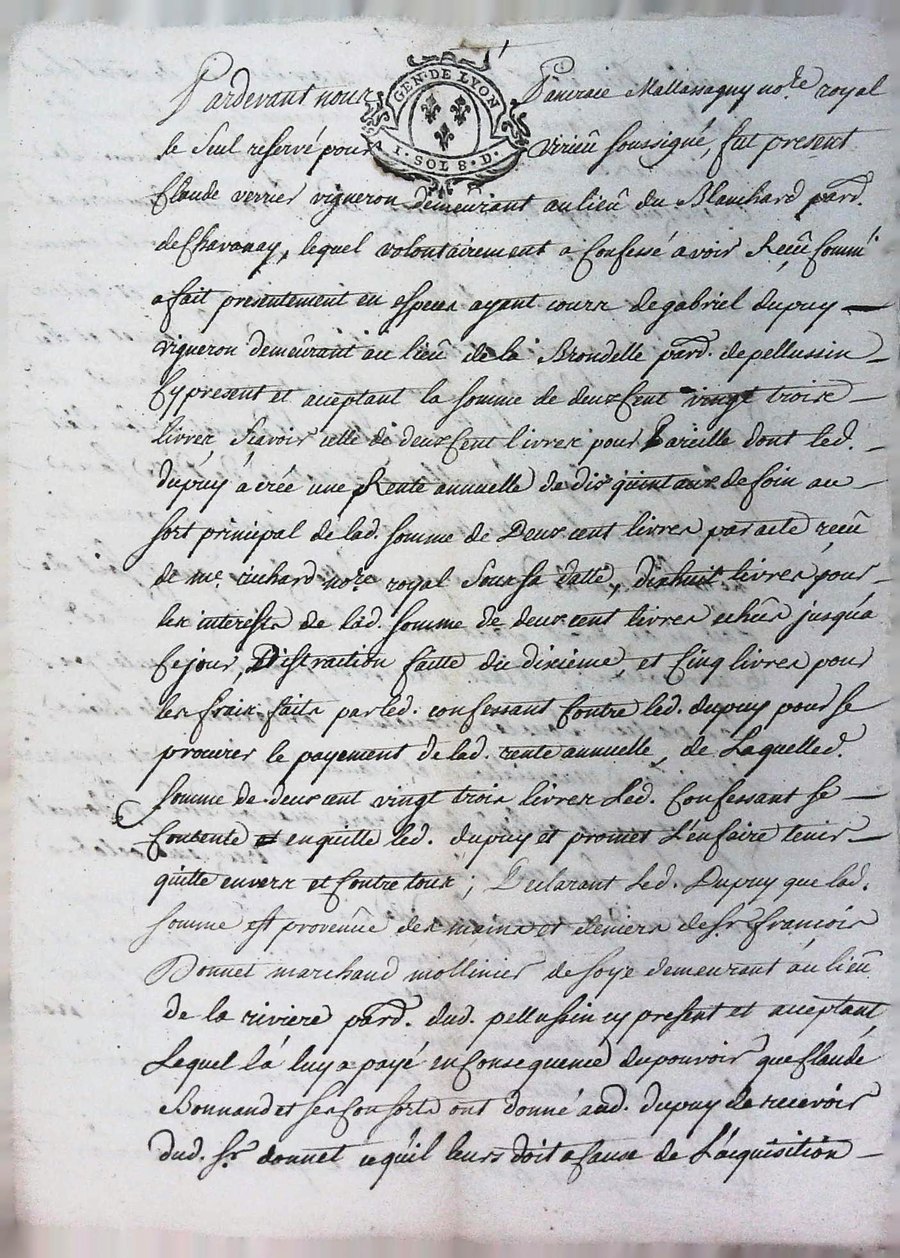 GEN. DE LYON
I. SOL 8. D.
Pardevant nous Pancrace Mallassagny no.re royal
le Seul reservé pour virieû soussigné, fut present
Claude verrier vigneron demeurant au lieû du Blanchard par.d
de Chavanay, lequel volontairement a Confessé avoir Reçû Comm'
a fait presentement en especes ayant cours de gabriel dupuy —
vigneron demeûrant au lieû de la Brondelle par.d de pellussin —
Cy present et acceptant la somme de deux Cent vingt trois —
livres, Scavoir celle de deux Cent livres pour Pareille dont led.
dupuy a créé une Rente annuelle de dix quintaux de foin au —
sort principal de lad. somme de Deux cent livres par acte reçû
de me. richard no.re royal Sous sa datte, dixhuit livres pour —
les interests de lad. somme de deux cent livres echûs jusqu'a
Ce jour, Distraction faitte du dixieme, et Cinq livres pour
les fraix faits par led. confessant Contre led. dupuy pour se
procurer le payement de lad. rente annuelle, de Laquelled.
somme de deux cent vingt trois livres Led. Confessant se —
Contente et en quitte led. dupuy et promet L'en faire tenir —
quitte envers et Contre tous; Declarant Led. Dupuy que lad.
somme est provenûe des mains et deniers de Sr. françois
Donnet marchand mollinier de soye demeurant au lieû
de la riviere par.d dud. pellussin cy present et acceptant,
Lequel l'a luy a payé en Consequence du pouvoir que Claude
Bonnand et ses Consorts ont donné aud. dupuy de recevoir
dud. Sr. donnet ce qu'il leurs doit a Cause de L'acquisition —